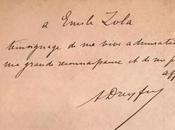 a Emile Zola
témoignage de ma vive admiration
ma grande reconnaissance et de ma p
aff
A Dreyfus